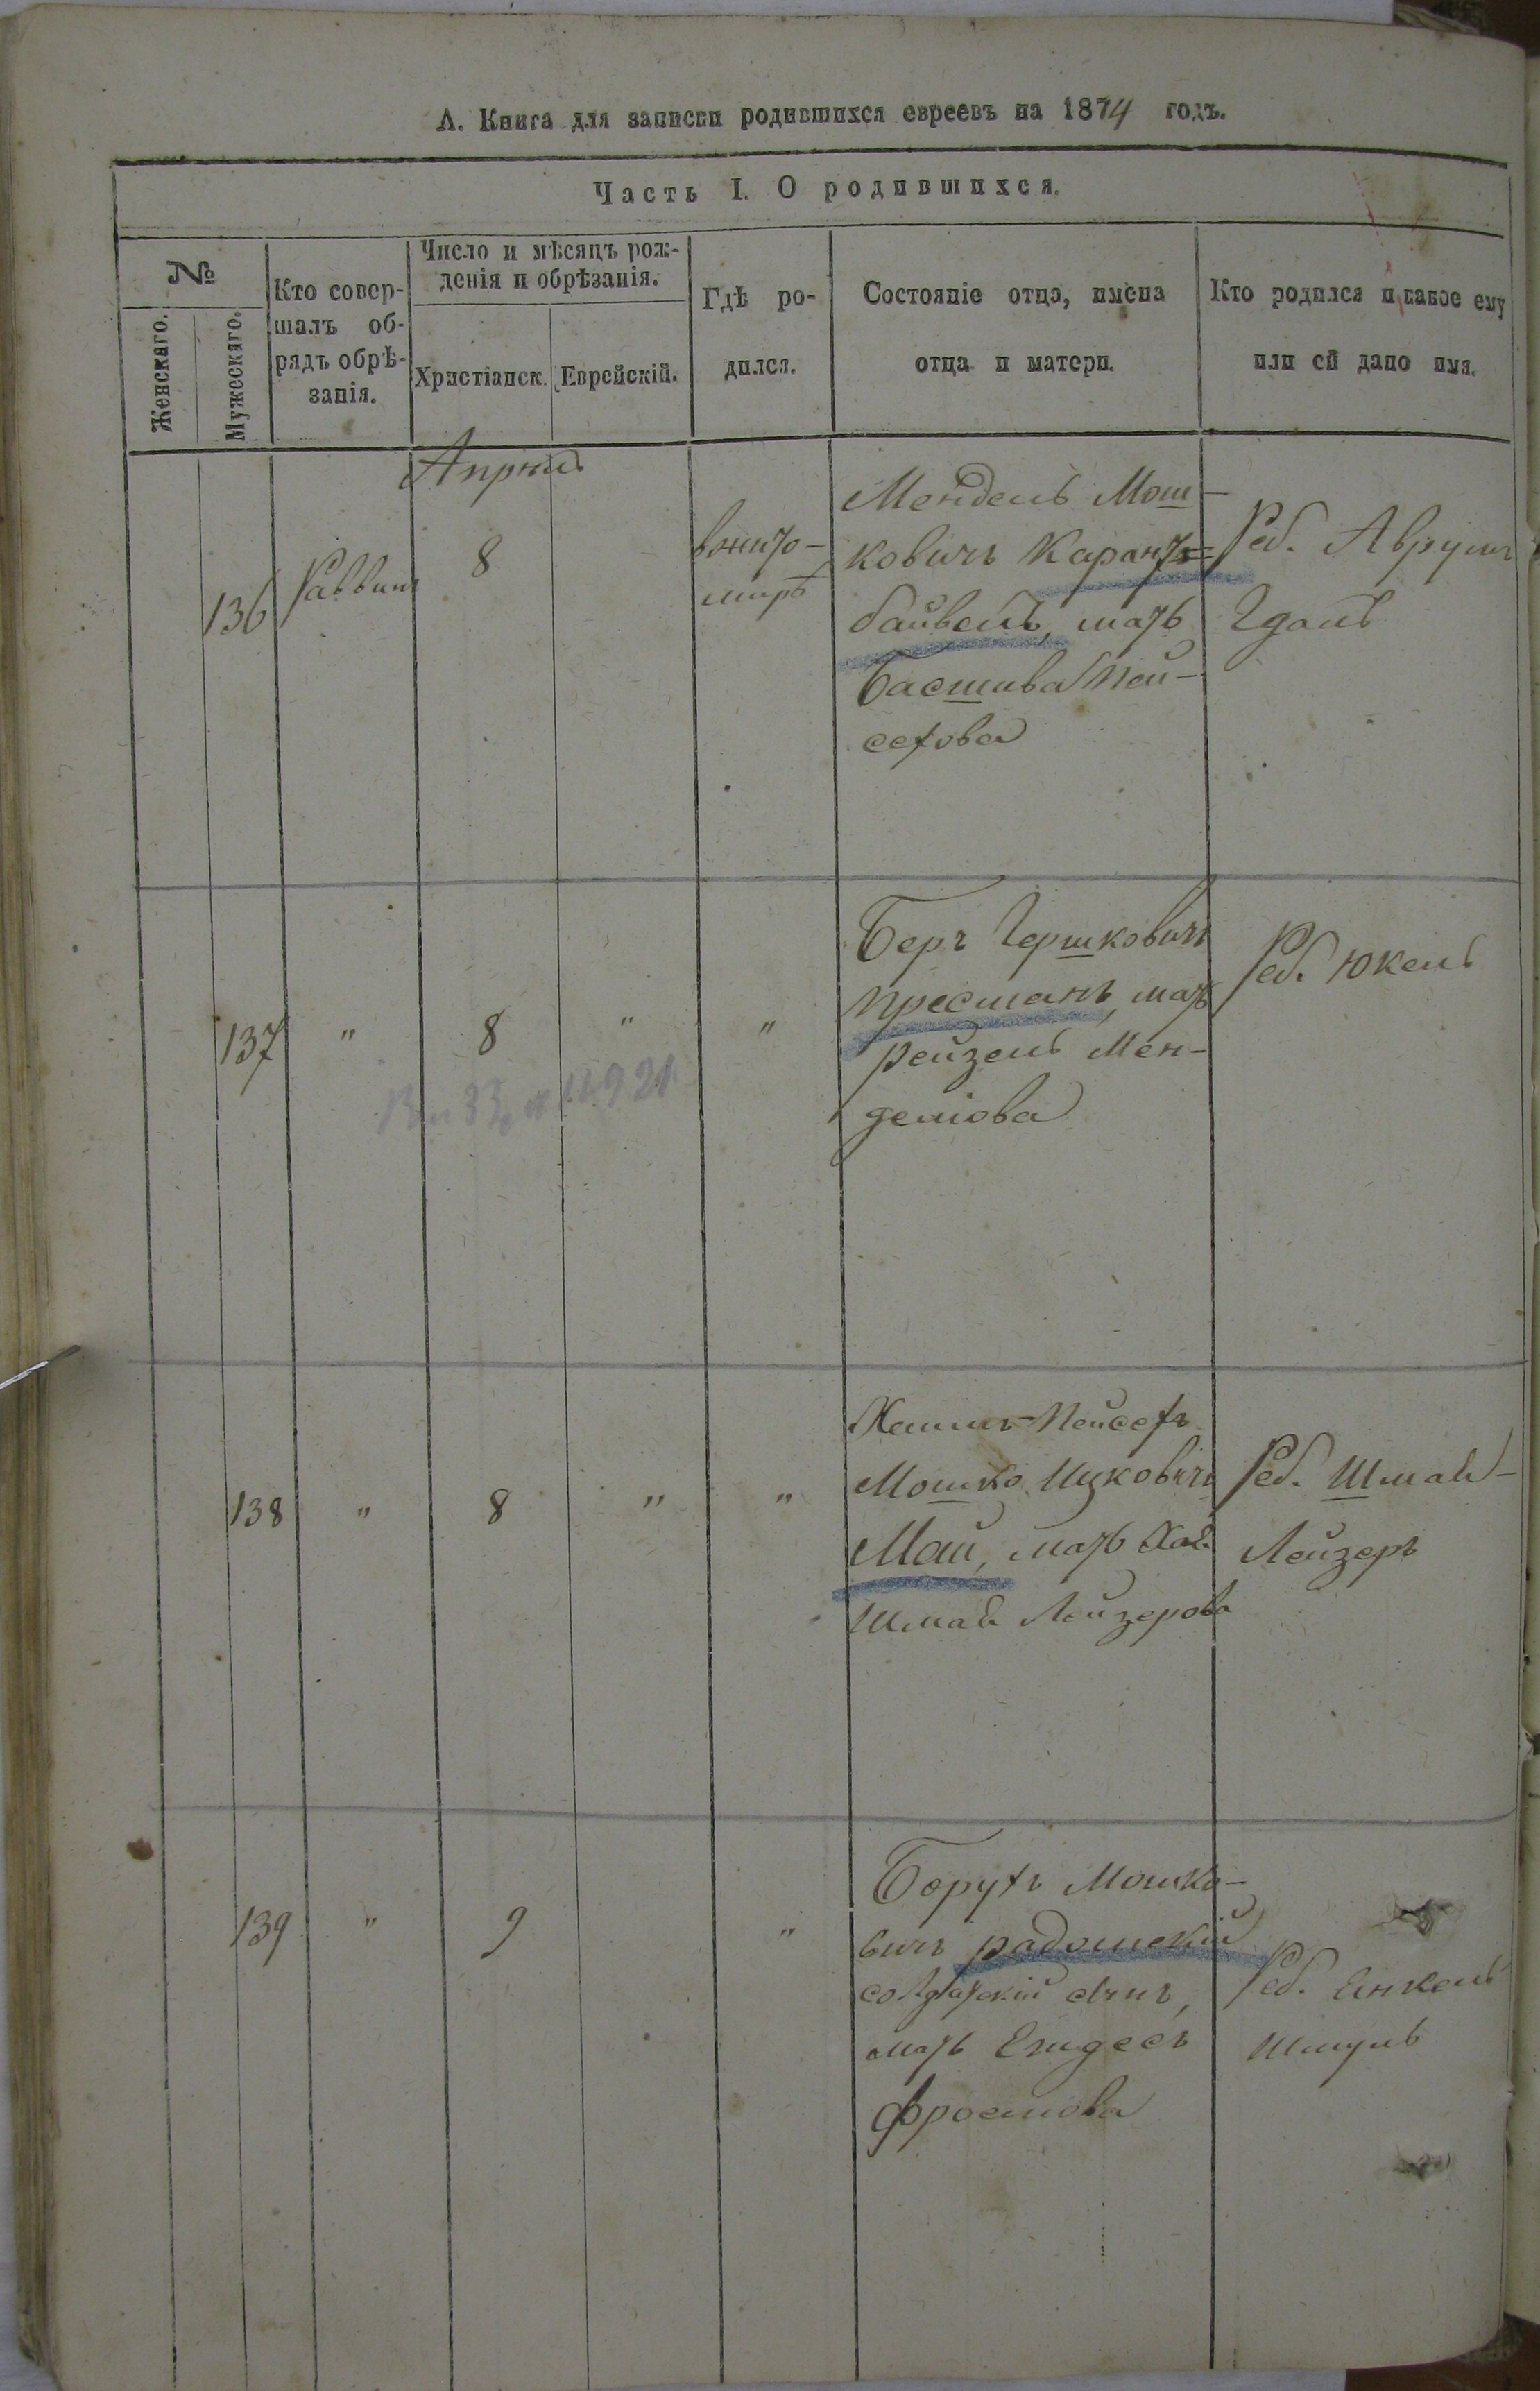 А. Книга для записки родившихся евреевъ на 1874 годъ.
Часть I. О родившихся.
№
Женскаго.
Мужескаго.
Кто совер-
шалъ об-
рядъ обрѣ-
занія.
Число и мѣсяцъ рож-
денія и обрѣзанія.
Христіанск.
Еврейскій.
Гдѣ ро-
дился.
Состояніе отца, имена
отца и матери.
Кто родился и какое ему
или ей дано имя.
Апрѣль
136
Раввинъ
8
Вжито-
мирѣ
Мендель Мош-
ковичъ Карант=
байвель, мать
Басшива Пей-
сахова
Реб. Аврумъ
Гдаль
137
"
8
"
"
Беръ Гершковичъ
Пресманъ, мать
Рейзель Мен-
делiова
Реб. Юкель
138
"
8
"
"
Хаимъ-Пейсехъ
Мошко Ицковичъ
Май, мать Хая
Шмая Лейзерова
Реб. Шмая-
Лейзеръ
139
"
9
"
Борухъ Мошко-
вичъ Радомскій
солдатскій сынъ,
мать
Фроимова
Реб. Янкель
Шмуль